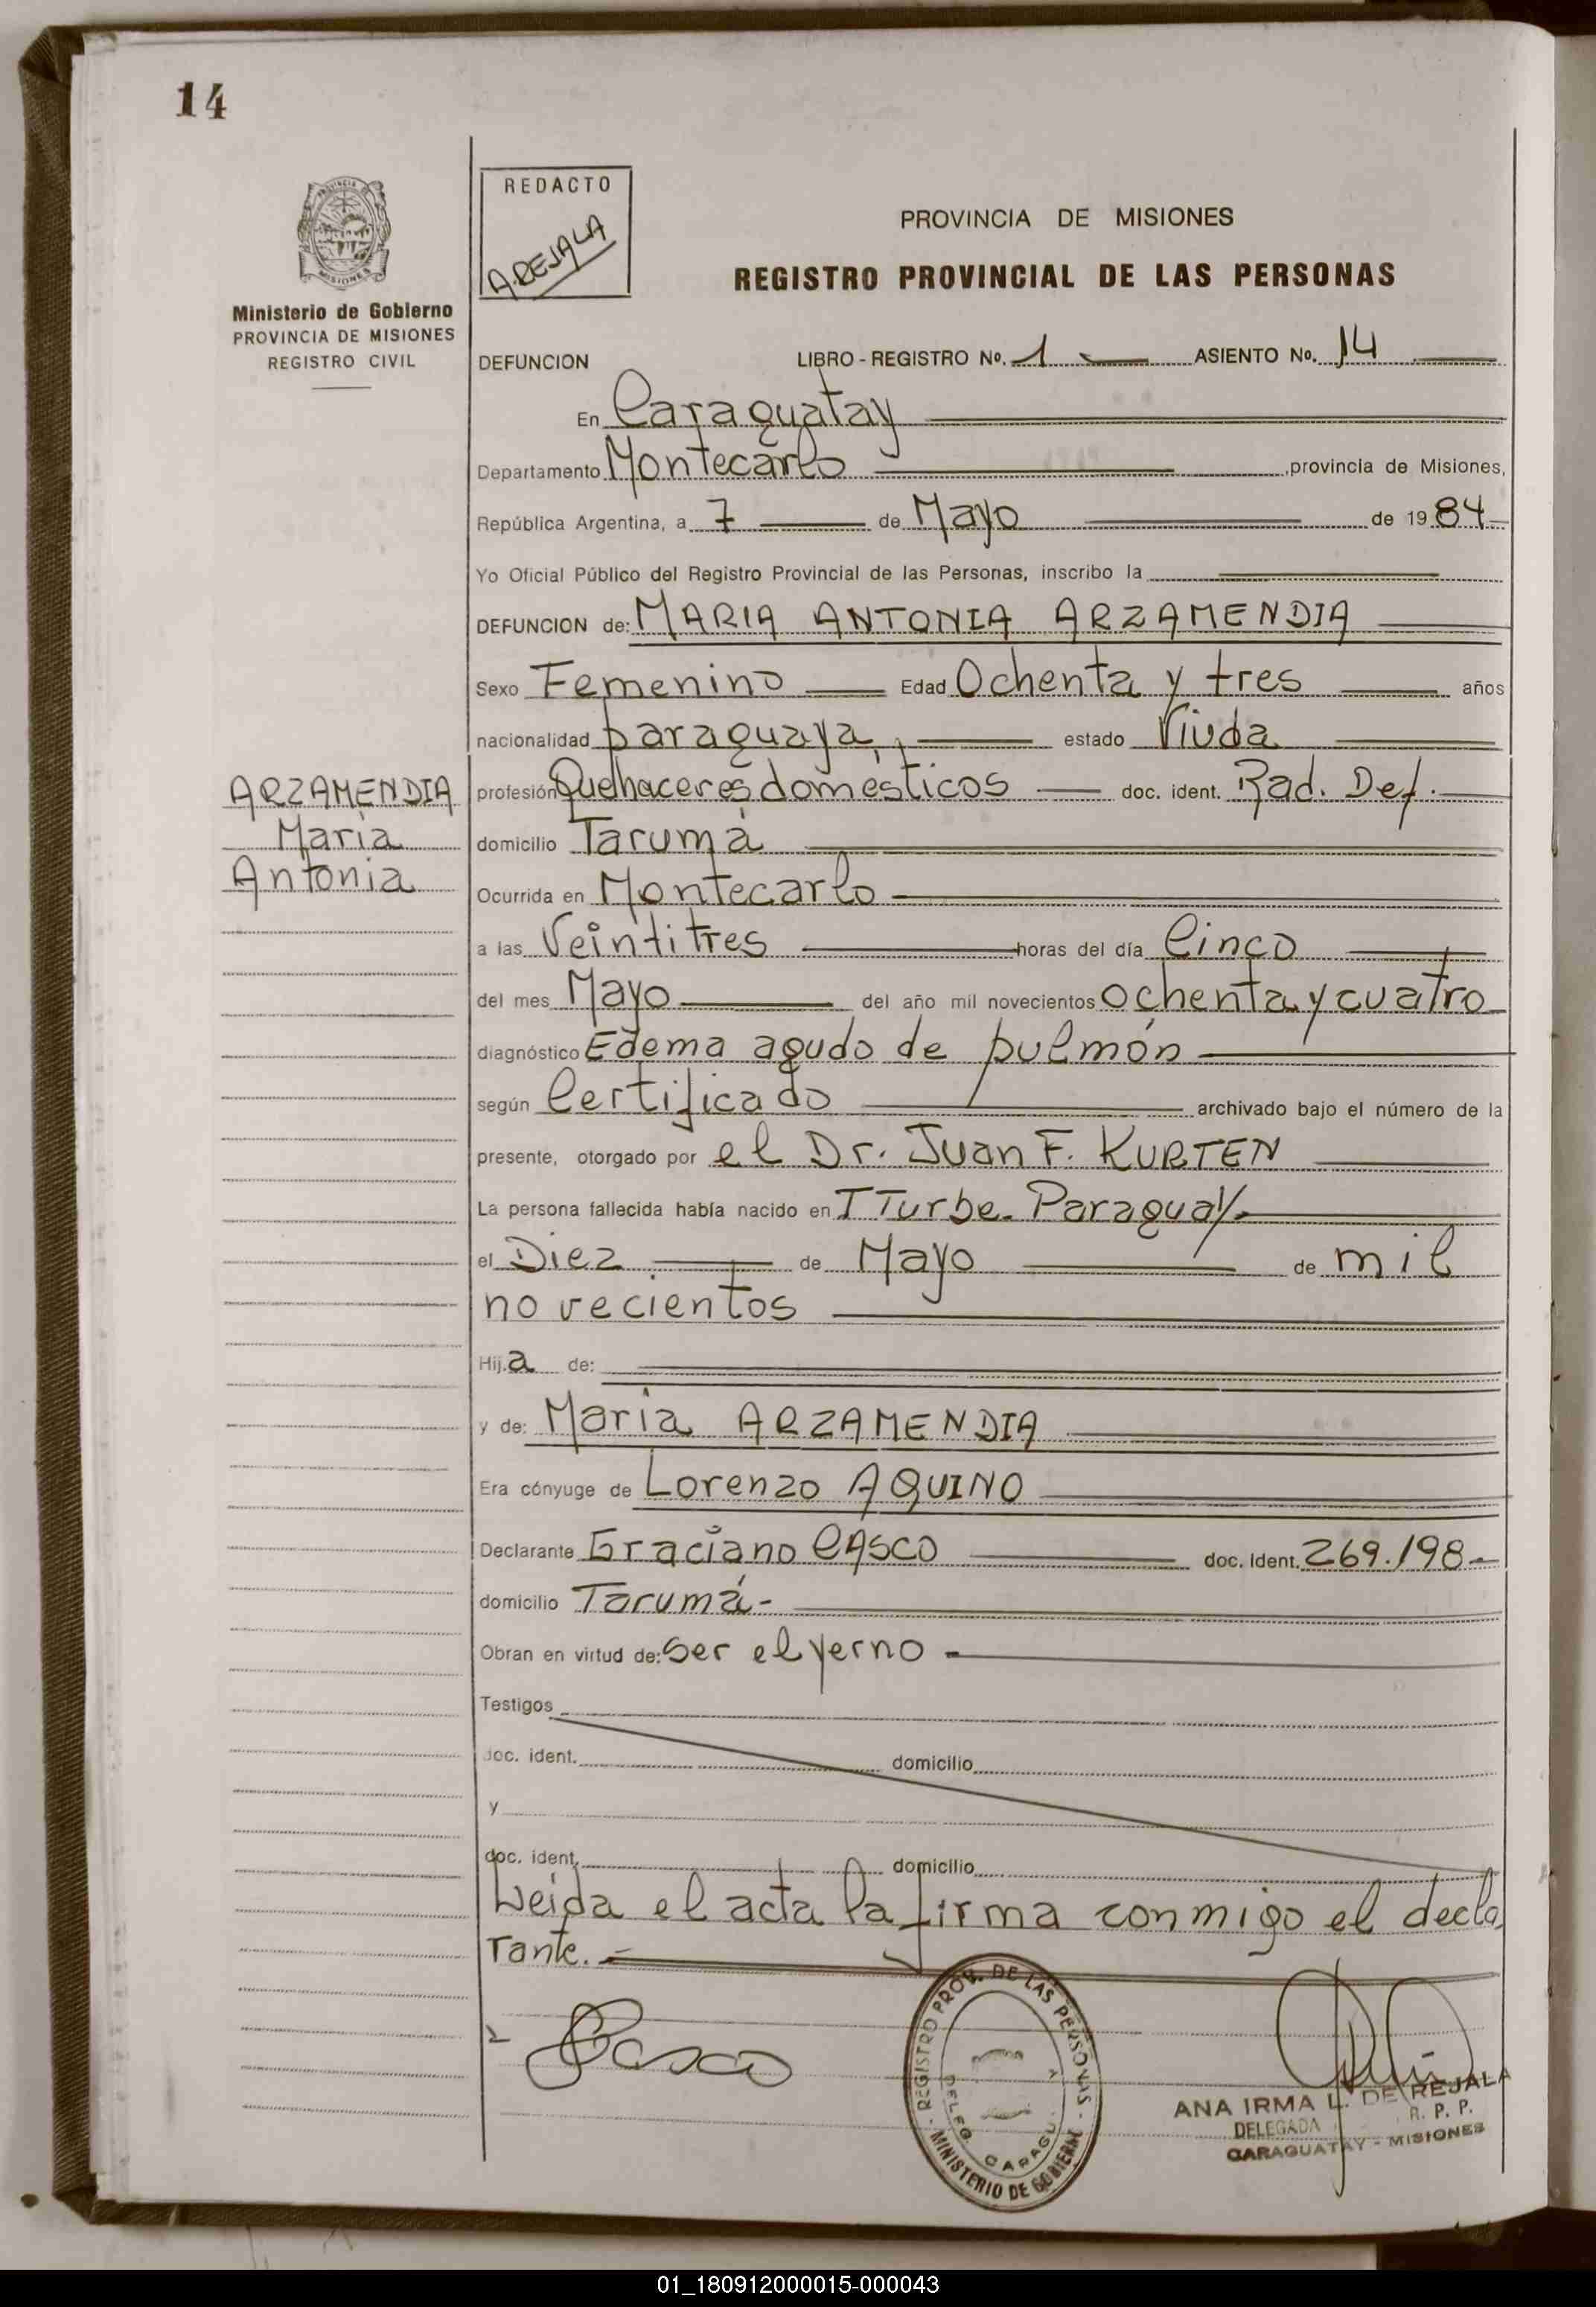 14
REDACTO
A.REJALA
PROVINCIA DE MISIONES
REGISTRO PROVINCIAL DE LAS PERSONAS
Ministerio de Gobierno
PROVINCIA DE MISIONES
REGISTRO CIVIL
DEFUNCION LIBRO - REGISTRO No. 1 ASIENTO No. 14
En Caraguatay
Departamento Montecarlo provincia de Misiones,
República Argentina, a 7 de Mayo de 1984
Yo Oficial Público del Registro Provincial de las Personas, inscribo la
DEFUNCION de: MARIA ANTONIA ARZAMENDIA
Sexo Femenino Edad Ochenta y tres años
nacionalidad paraguaya, estado Viuda
ARZAMENDIA
Maria
Antonia
profesión Quehaceres domésticos doc. ident. Rad. Def.
domicilio Tarumá
Ocurrida en Montecarlo
a las Veintitres horas del día Cinco
del mes Mayo del año mil novecientos ochenta y cuatro
diagnóstico Edema agudo de pulmón
según Certificado archivado bajo el número de la
presente, otorgado por el Dr. Juan F. KURTEN
La persona fallecida había nacido en ITurbe. Paraguay
el Diez de Mayo de mil
novecientos
Hij.a de:
y de: Maria ARZAMENDIA
Era cónyuge de Lorenzo AQUINO
Declarante Graciano CASCO doc. ident. 269.198-
domicilio Tarumá-
Obran en virtud de: Ser el yerno -
Testigos
doc. ident. domicilio
y
doc. ident. domicilio
Leida el acta la firma conmigo el decla
rante.
Casco
REGISTRO PROV. DE LAS PERSONAS
MINISTERIO DE GOBIERNO
ANA IRMA L. DE REJALA
DELEGADA R. P. P.
CARAGUATAY - MISIONES
01_180912000015-000043